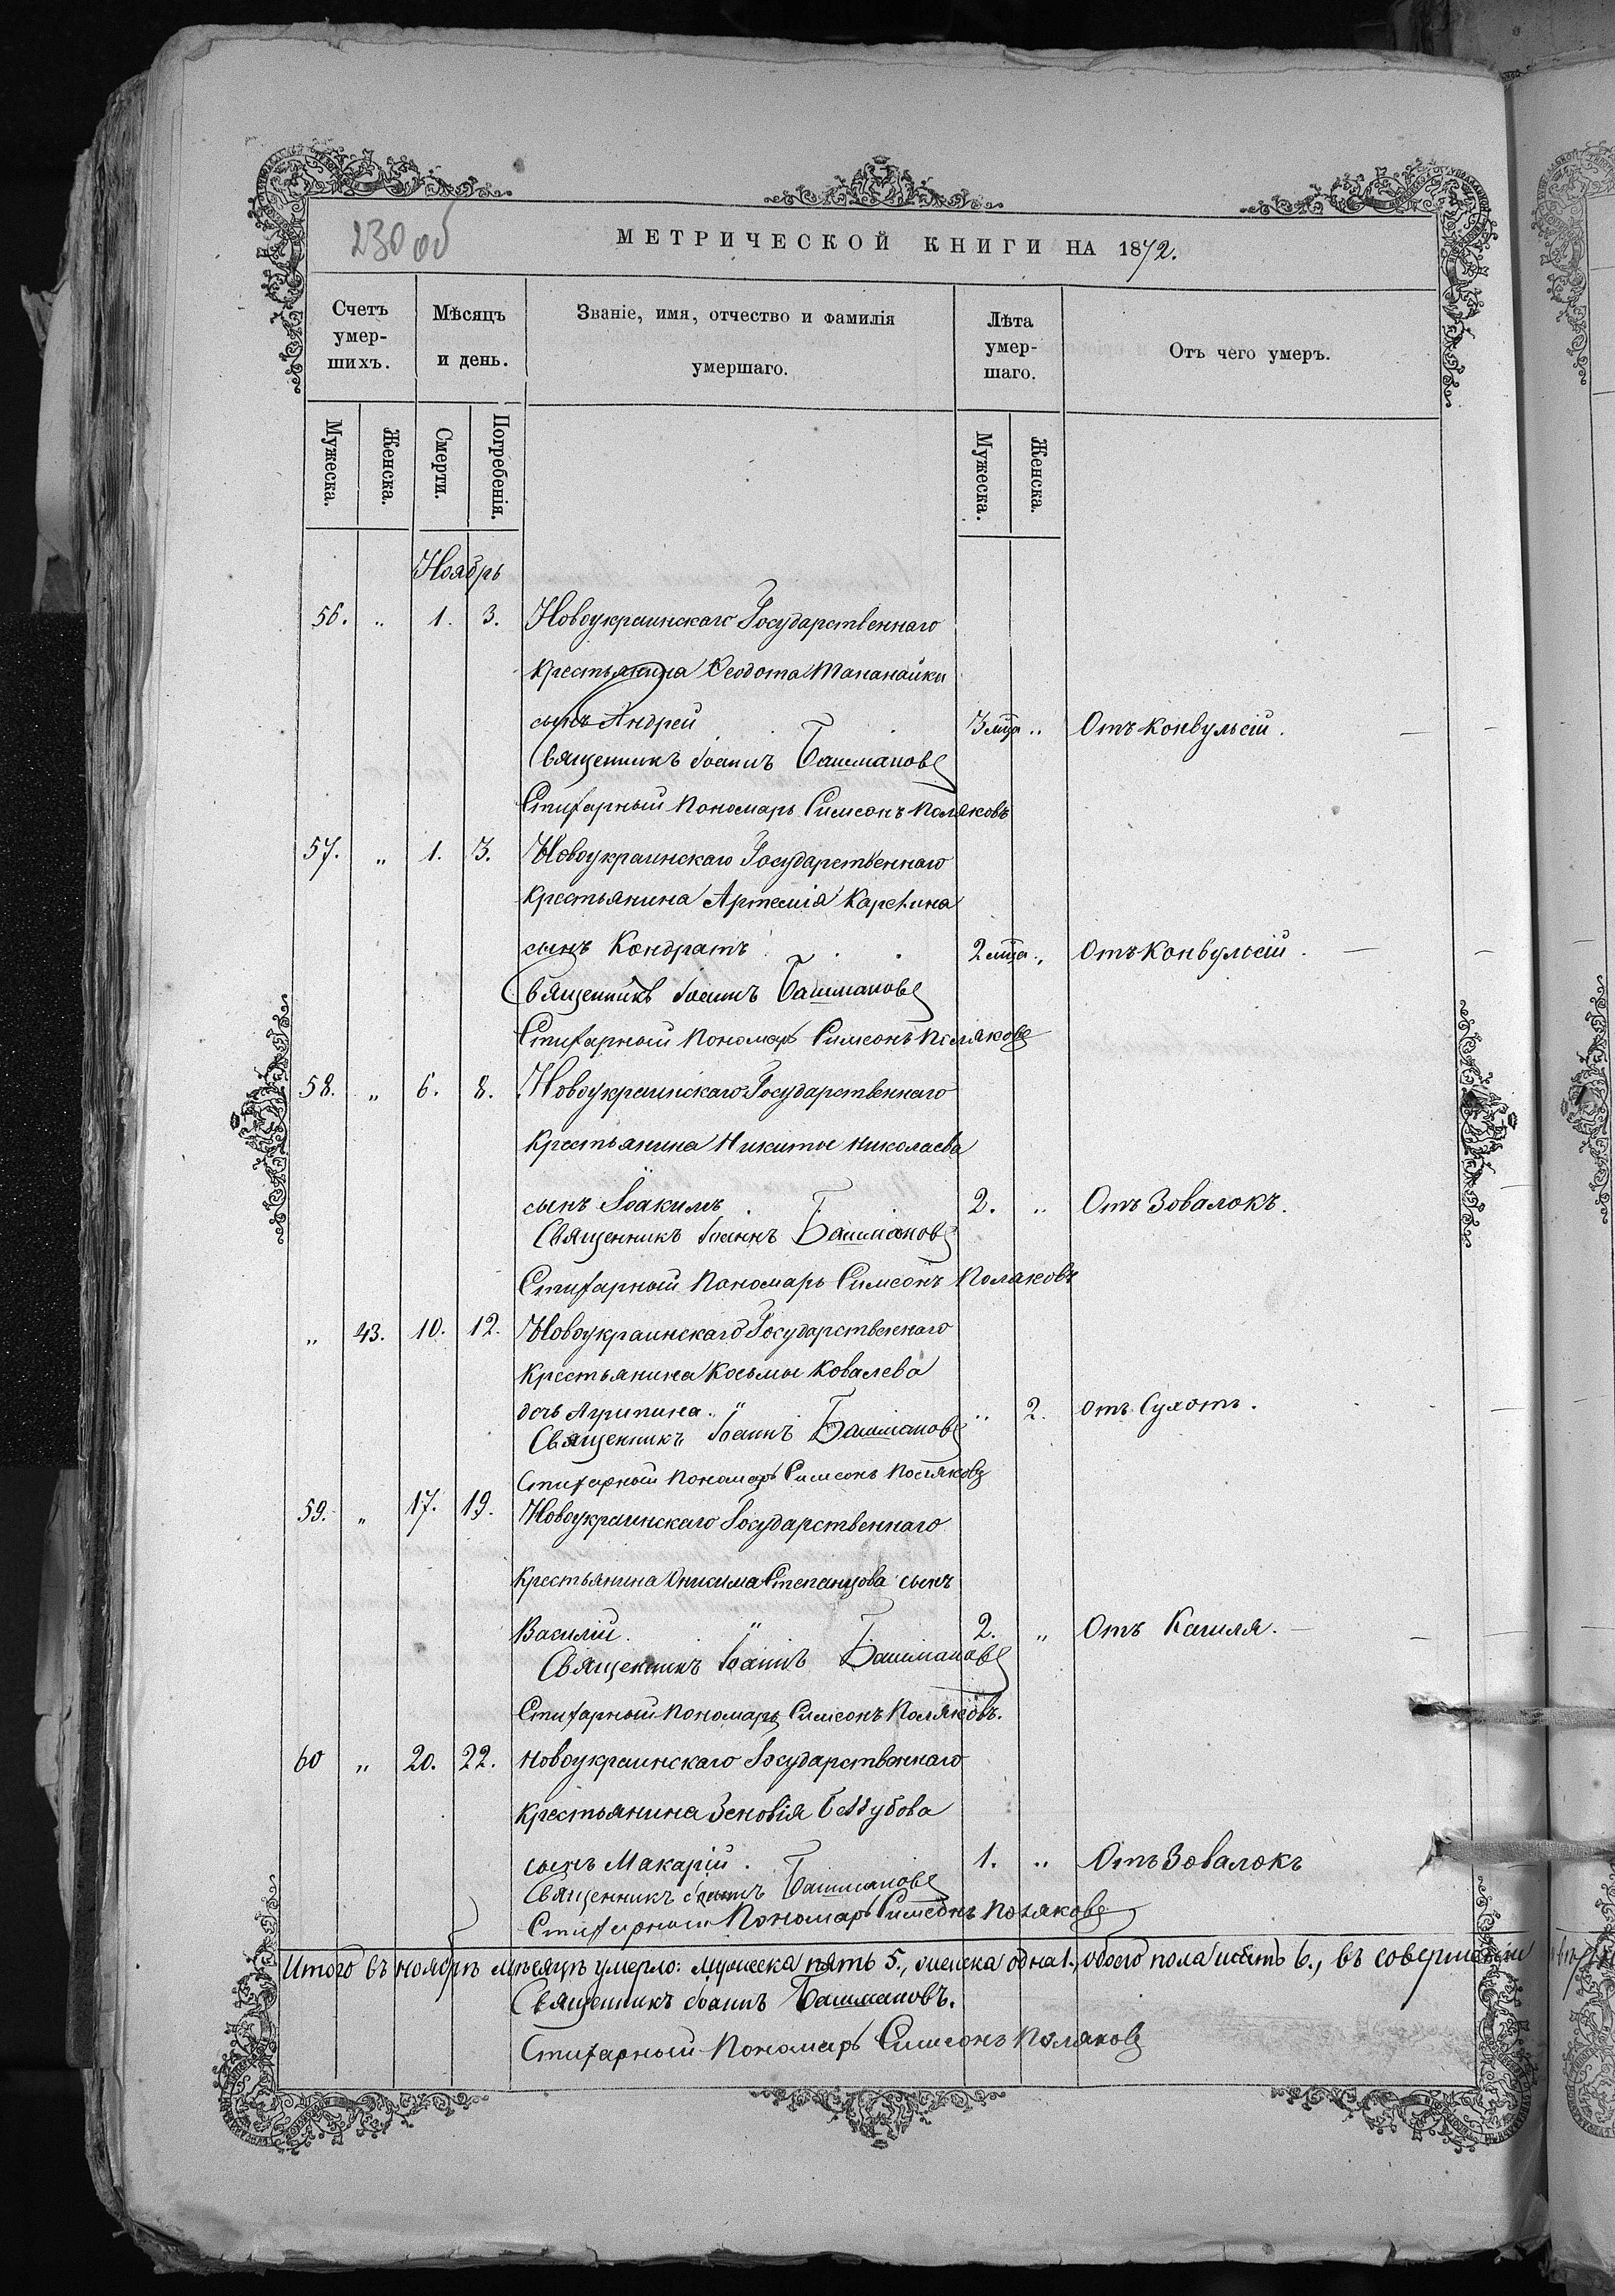 230 об
МЕТРИЧЕСКОЙ КНИГИ НА 1872.
Счетъ умер-шихъ.
Мѣсяцъ и день.
Званіе, имя, отчество и фамилія умершаго.
Лѣта умер-шаго.
Отъ чего умеръ.
Мужеска.
Женска.
Смерти.
Погребенія.
Мужеска.
Женска.
Ноябрь
56. „ 1. 3. Новоукраинскаго Государственнаго
крестьянина Ѳеодота Мананайки
сынъ Андрей 3 мца „ Отъ конвульсій.
Священникъ Іоаннъ Башмановъ
Стихарный Пономарь Симеонъ Поляковъ
57. „ 1. 3. Новоукраинскаго Государственнаго
крестьянина Артемія Каренина
сынъ Кондратъ 2 мца „ Отъ Конвульсій.
Священникъ Іоаннъ Башмановъ
Стихарный Пономарь Симеонъ Поляковъ
58. „ 6. 8. Новоукраинскаго Государственнаго
Крестьянина Никиты Николаева
сынъ Іоакимъ 2. „ Отъ Зовалокъ.
Священникъ Іоаннъ Башмановъ
Стихарный Пономарь Симеонъ Поляковъ
„ 43. 10. 12. Новоукраинскаго Государственнаго
Крестьянина Косьмы Ковалева
дочь Агрипина „ „ 2. отъ Сухотъ.
Священникъ Іоаннъ Башмановъ
Стихарный Пономарь Симеонъ Поляковъ
59. „ 17. 19. Новоукраинскаго Государственнаго
Крестьянина Онисима Степанцова сынъ
Василій. „ 2. „ Отъ Кашля.
Священникъ Іоаннъ Башмановъ
Стихарный Пономарь Симеонъ Поляковъ.
60 „ 20. 22. Новоукраинскаго Государственнаго
крестьянина Зеновія Беззубова
сынъ Макарій. 1. „ Отъ Зовалокъ
Священникъ Іоаннъ Башмановъ
Стихарный Пономарь Симеонъ Поляковъ
Итого въ ноябрѣ мѣсяцѣ умерло: мужеска пять 5., женска одна 1., обоего пола шесть 6., въ
Священникъ Іоаннъ Башмановъ.
Стихарный Пономарь Симеонъ Поляковъ